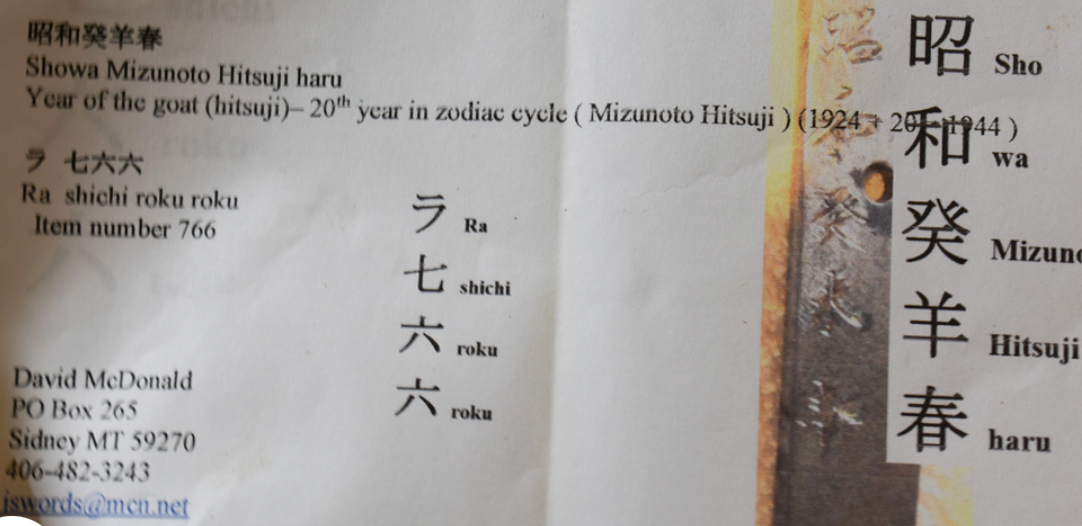 昭和癸羊春
Showa Mizunoto Hitsuji haru
Year of the goat (hitsuji)– 20th year in zodiac cycle ( Mizunoto Hitsuji ) (1924 + 20 1944 )
ラ 七六六
Ra shichi roku roku
Item number 766
ラ Ra
七 shichi
六 roku
六 roku
David McDonald
PO Box 265
Sidney MT 59270
406-482-3243
jswords@mcn.net
昭 Sho
和 wa
癸 Mizuno
羊 Hitsuji
春 haru